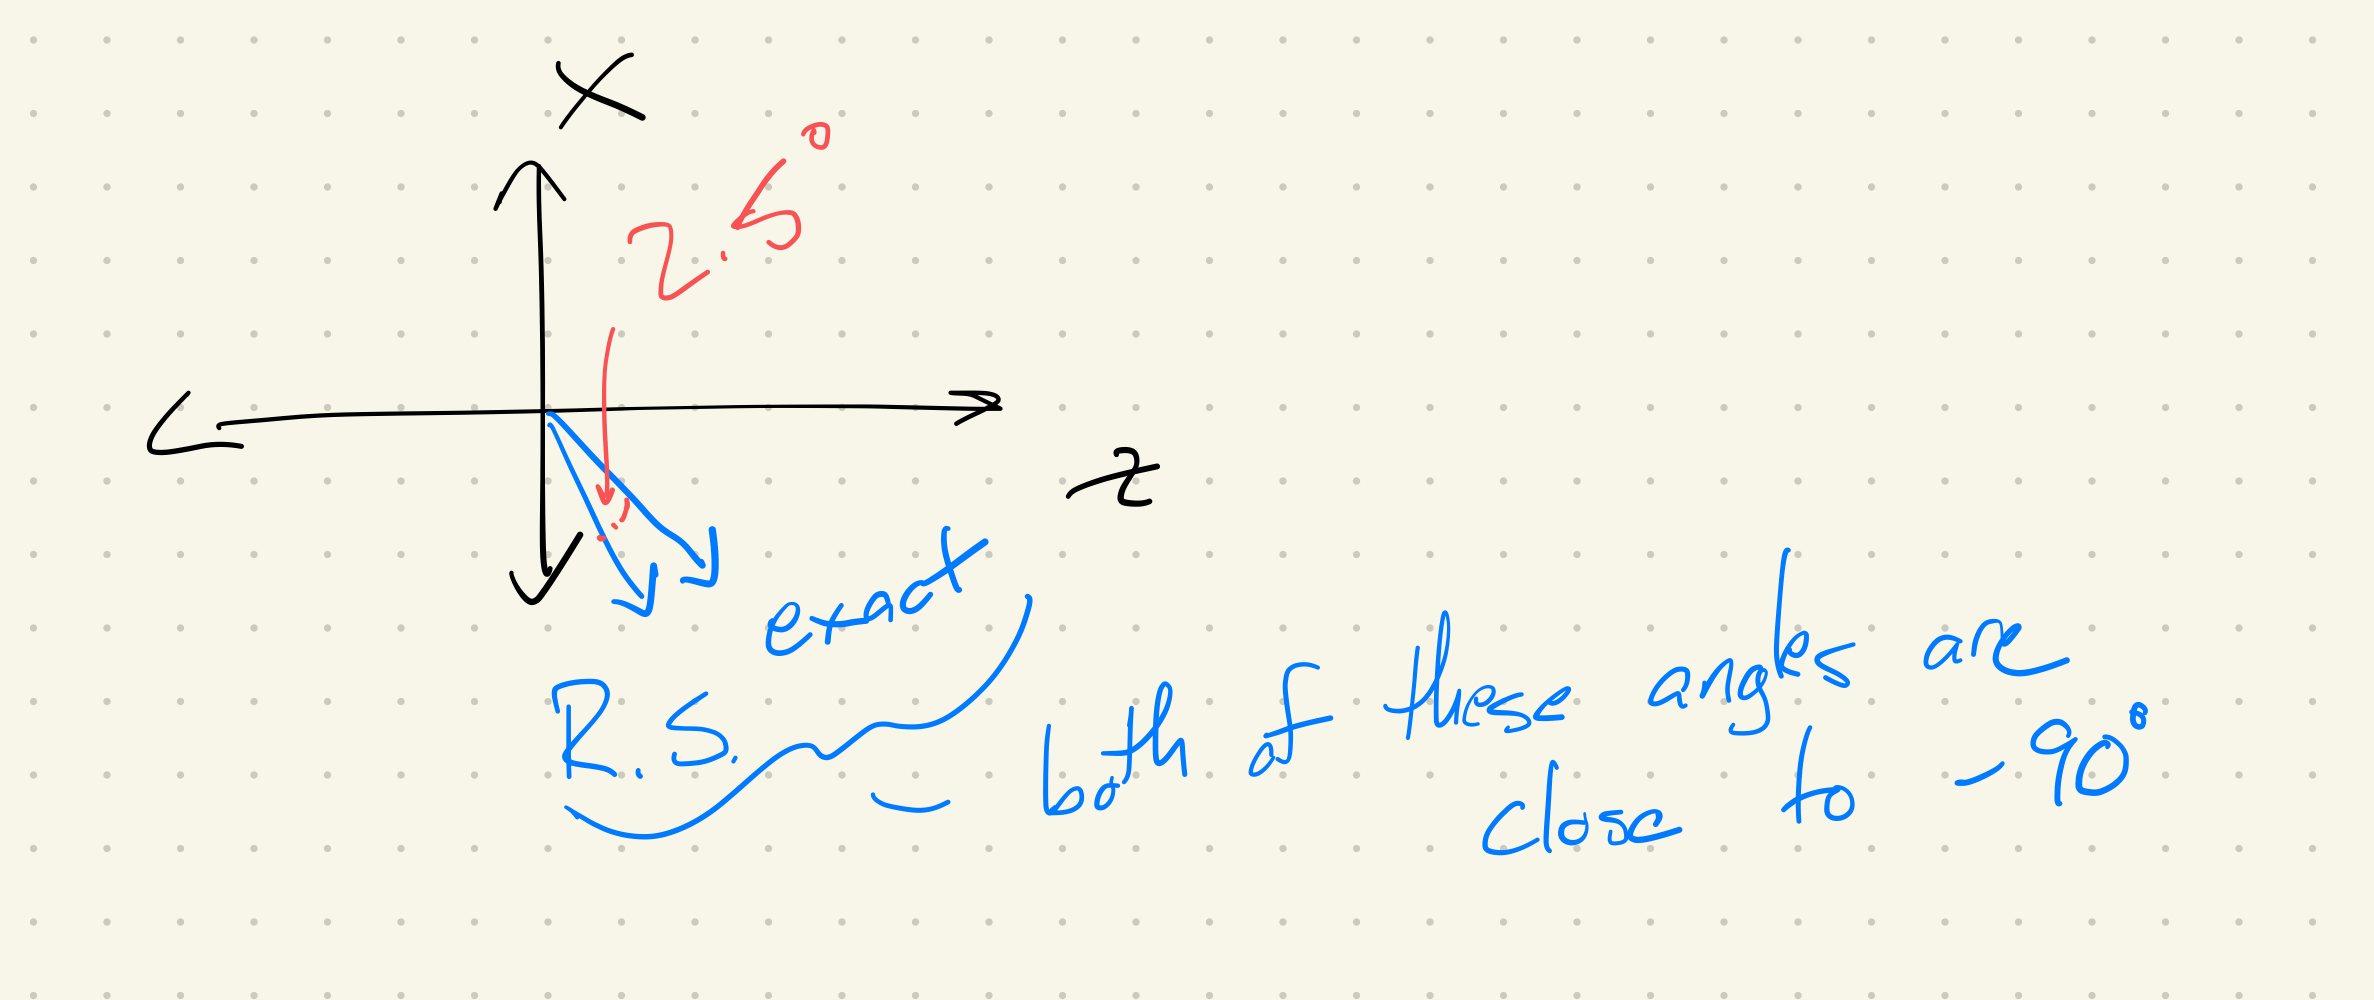 X
2.5°
z
exact
R.S.
- both of these angles are
close to -90°